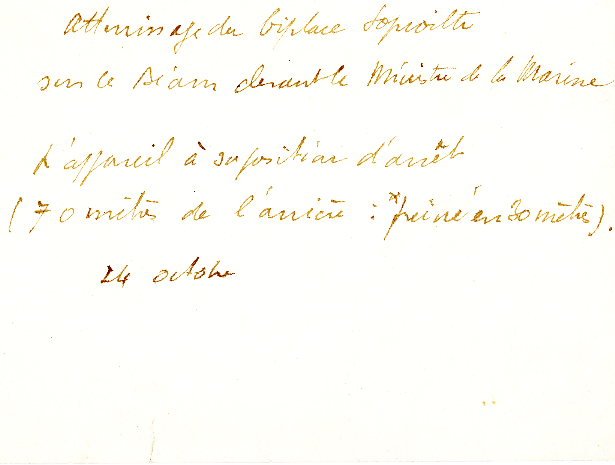 Atterrissage du biplace Sopwith
sur le Béarn devant le Ministre de la Marine
L'appareil à sa position d'arrêt
(70 mètres de l'arrière : freiné en 30 mètres).
24 octobre